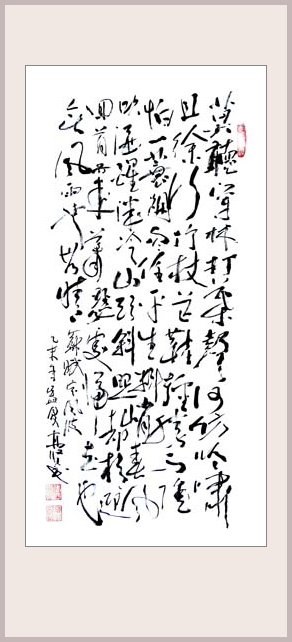 莫聽穿林打葉聲何妨吟嘯
且徐行竹杖芒鞋輕勝馬誰
怕一蓑烟雨任平生料峭春風
吹酒醒微冷山頭斜照却相迎
回首向來蕭瑟處歸去也
無風雨也無晴
蘇軾定風波
乙未年